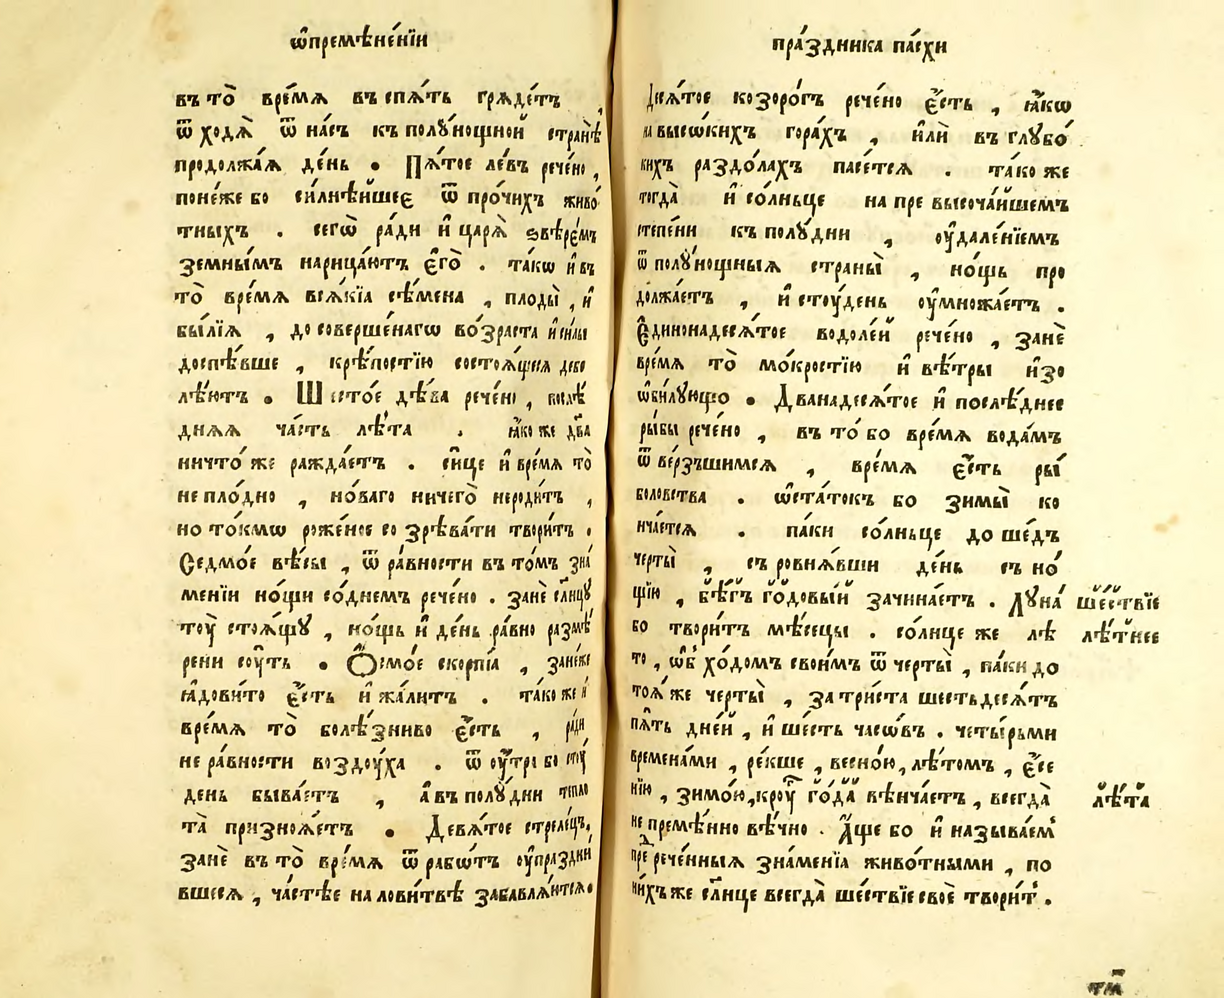 ѡ҆премѣне́нїи
въ то̀ вре́мѧ въспѧ́ть грѧде́тъ ,
ѿходѧ̀ ѿ на́съ къ полꙋ́нощной странѣ̀
продолжа́ѧ де́нь . Пѧ́тое ле́въ рече́но ,
поне́же бо си́лнѣйшее ѿ про́чихъ живо́
тныхъ . сегѡ̀ ра́ди и҆ царѧ̀ ѕвѣре́мъ
земны́мъ нарица́ютъ є҆го̀ . та́кѡ и҆ въ
то̀ вре́мѧ всѧ́кїа сѣ́мена , плоды̀ , и҆
бы́лїѧ , до соверше́нагѡ во́зраста и҆ си́лы
доспѣ́вше , крѣ́постїю состоѧ́щесѧ дебе
лѣ́ютъ . Шесто́е дѣ́ва рече́но , послѣ́
днѧѧ ча́сть лѣ́та . ꙗ҆́коже два
ничто́же ражда́етъ . си́це и҆ вре́мѧ то̀
непло́дно , но́ваго ничего̀ нероди́тъ ,
но то́кмѡ роже́ное созрѣва́ти твори́тъ .
Седмо́е вѣ́сы , ѿ ра́вности въ то́мъ зна́
менїи но́щи со́днемъ рече́но . занѐ сл҃нцꙋ
тоу̀ стоѧ́щꙋ , но́щь и҆ де́нь ра́вно размѣ́
рени сꙋ́ть . Ѻ҆смо́е скорпі́а , зане́же
ꙗ҆дови́то є҆́сть и҆ жа́литъ . та́коже и҆
вре́мѧ то̀ болѣ́зниво є҆́сть , ра́ди
нера́вности воздꙋ́ха . ѿ оу҆́тра бо стꙋ́
день быва́етъ , а҆ въ полꙋ́дни тепло
та̀ призно́жетъ . Девѧ́тое стреле́цъ ,
занѐ въ то̀ вре́мѧ ѿ рабо́тъ оу҆праздни́
вшесѧ , ча́стѣе на лови́твѣ забавлѧ́ютсѧ .
пра́здника па́схи
Десѧ́тое козоро́гъ рече́но є҆́сть , ꙗ҆́кѡ
на высѡ́кихъ гора́хъ , и҆лѝ въ глꙋбо́
кихъ раздо́лахъ пасе́тсѧ . та́коже
тогда̀ и҆ со́лньце на превысоча́йшемъ
степе́ни къ полꙋ́дни , оу҆дале́нїемъ
ѿ полꙋ́нощныѧ страны̀ , но́щь про
должа́етъ , и҆ стоу́день оу҆множа́етъ .
Є҆динонадесѧ́тое водоле́й рече́но , занѐ
вре́мѧ то̀ мо́кростїю и҆ вѣ́тры и҆зо
ѡ҆би́лꙋющо . Дванадесѧ́тое и҆ послѣ́днее
ры́бы рече́но , въ то́ бо вре́мѧ вода́мъ
ѿве́рзъшимсѧ , вре́мѧ є҆́сть ры́
боловства . ѡ҆ста́токъ бо зимы̀ ко
нча́етсѧ . па́ки со́лньце доше́дъ
черты̀ , съровнѧ́вши де́нь съ но́
щїю , бѣ́гъ годовы́й зачина́етъ . Лꙋна̀
бо твори́тъ мѣ́сецы . со́лнце же лѣ́
то , ѡ҆бхо́домъ свои́мъ ѿ черты̀ , па́ки до
тоѧ́же черты̀ , за три́ста шестьдесѧ́тъ
пѧ́ть дне́й , и҆ ше́сть часѡ́въ . четы́рьми
времена́ми , ре́кше , весно́ю , лѣ́томъ , є҆се
нїю , зимо́ю , кроу́гъ го́да вѣнча́етъ , всегда̀
непремѣ́нно вѣ́чно . А҆́ще бо и҆ называ́ем
предрече́нныѧ зна́менїа живо́тными , по
ни́хъже сл҃нце всегда̀ ше́ствїе своѐ твори́т .
ше́ствїе
лѣ́тнее
лѣ́та